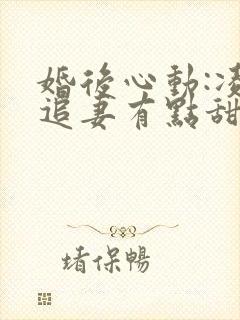 婚後心動:凌
追妻有點甜
堵保暢